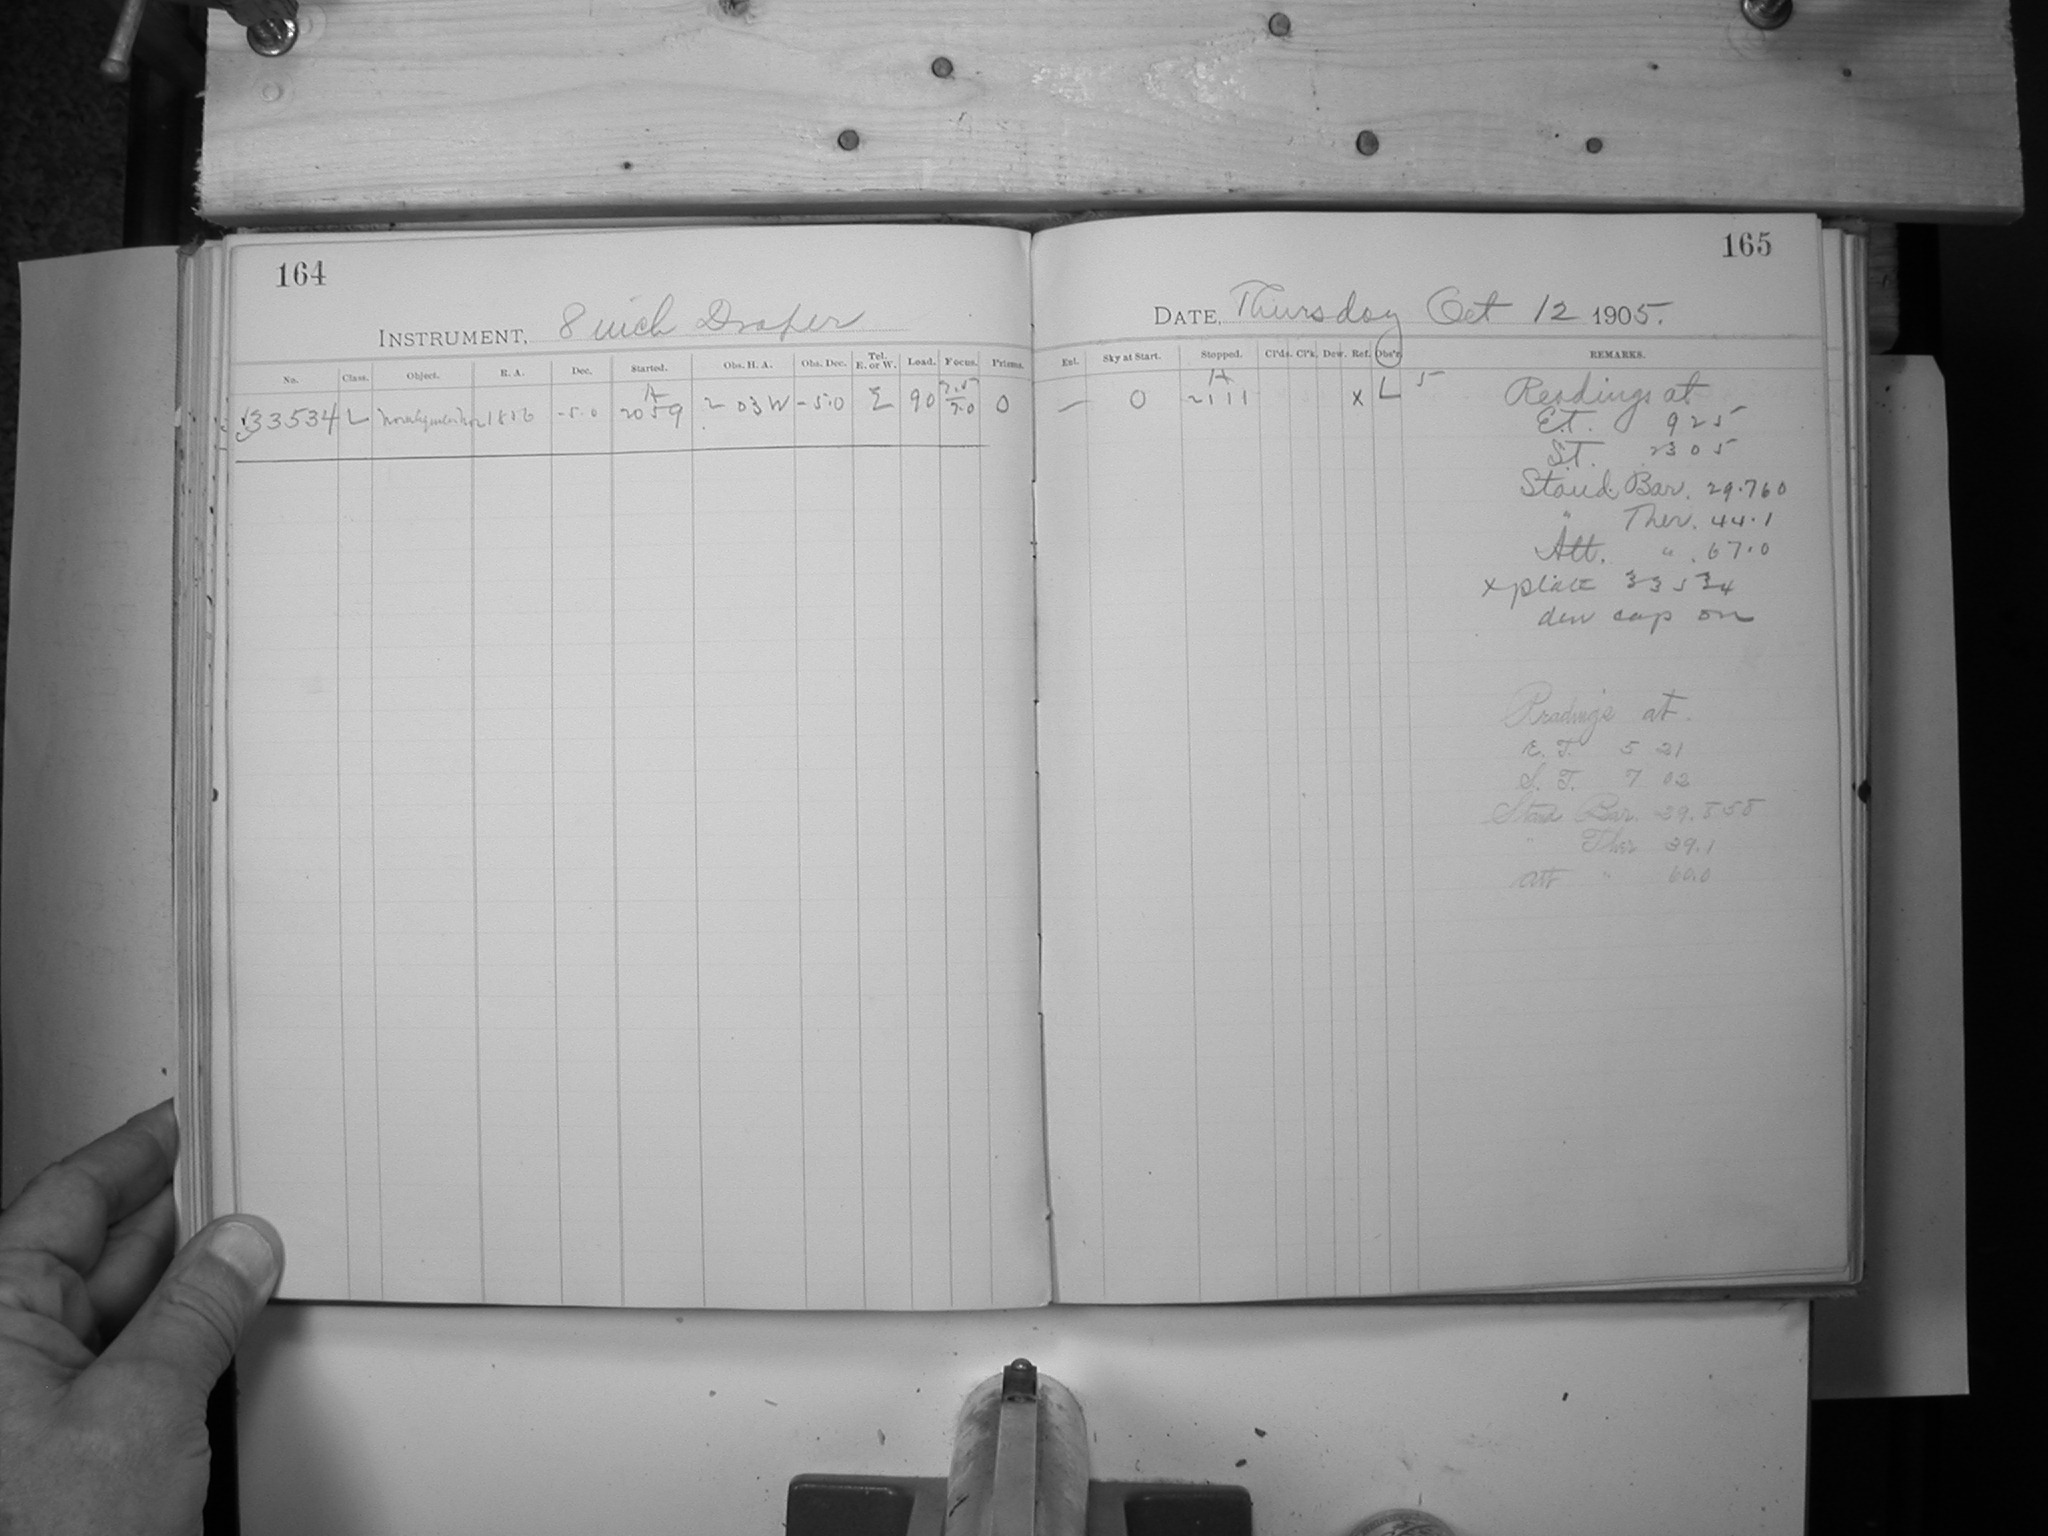 164
INSTRUMENT, 8 inch Draper
No. Class. Object. R. A. Dec. Started. Obs. H. A. Obs. Dec. Tel. E. or W. Load. Focus. Prisms.
33534 L 1856 -5.0 H 20 59 2 03 W -5.0 E 90 7.0 0
165
DATE, Thursday Oct 12 1905.
Ext. Sky at Start. Stopped. Cl'ds. Cl'k. Dew. Ref. Obs'r. REMARKS.
— 0 H 21 11 x L 5
Readings at
E.T. 9 25
S.T. 23 05
Stand. Bar. 29.760
" Ther. 44.1
Att. " 67.0
x plate 33534
dew cap on
Readings at.
E. T. 5 21
S. T. 7 02
Stand Bar. 29.858
" Ther 39.1
Att " 60.0